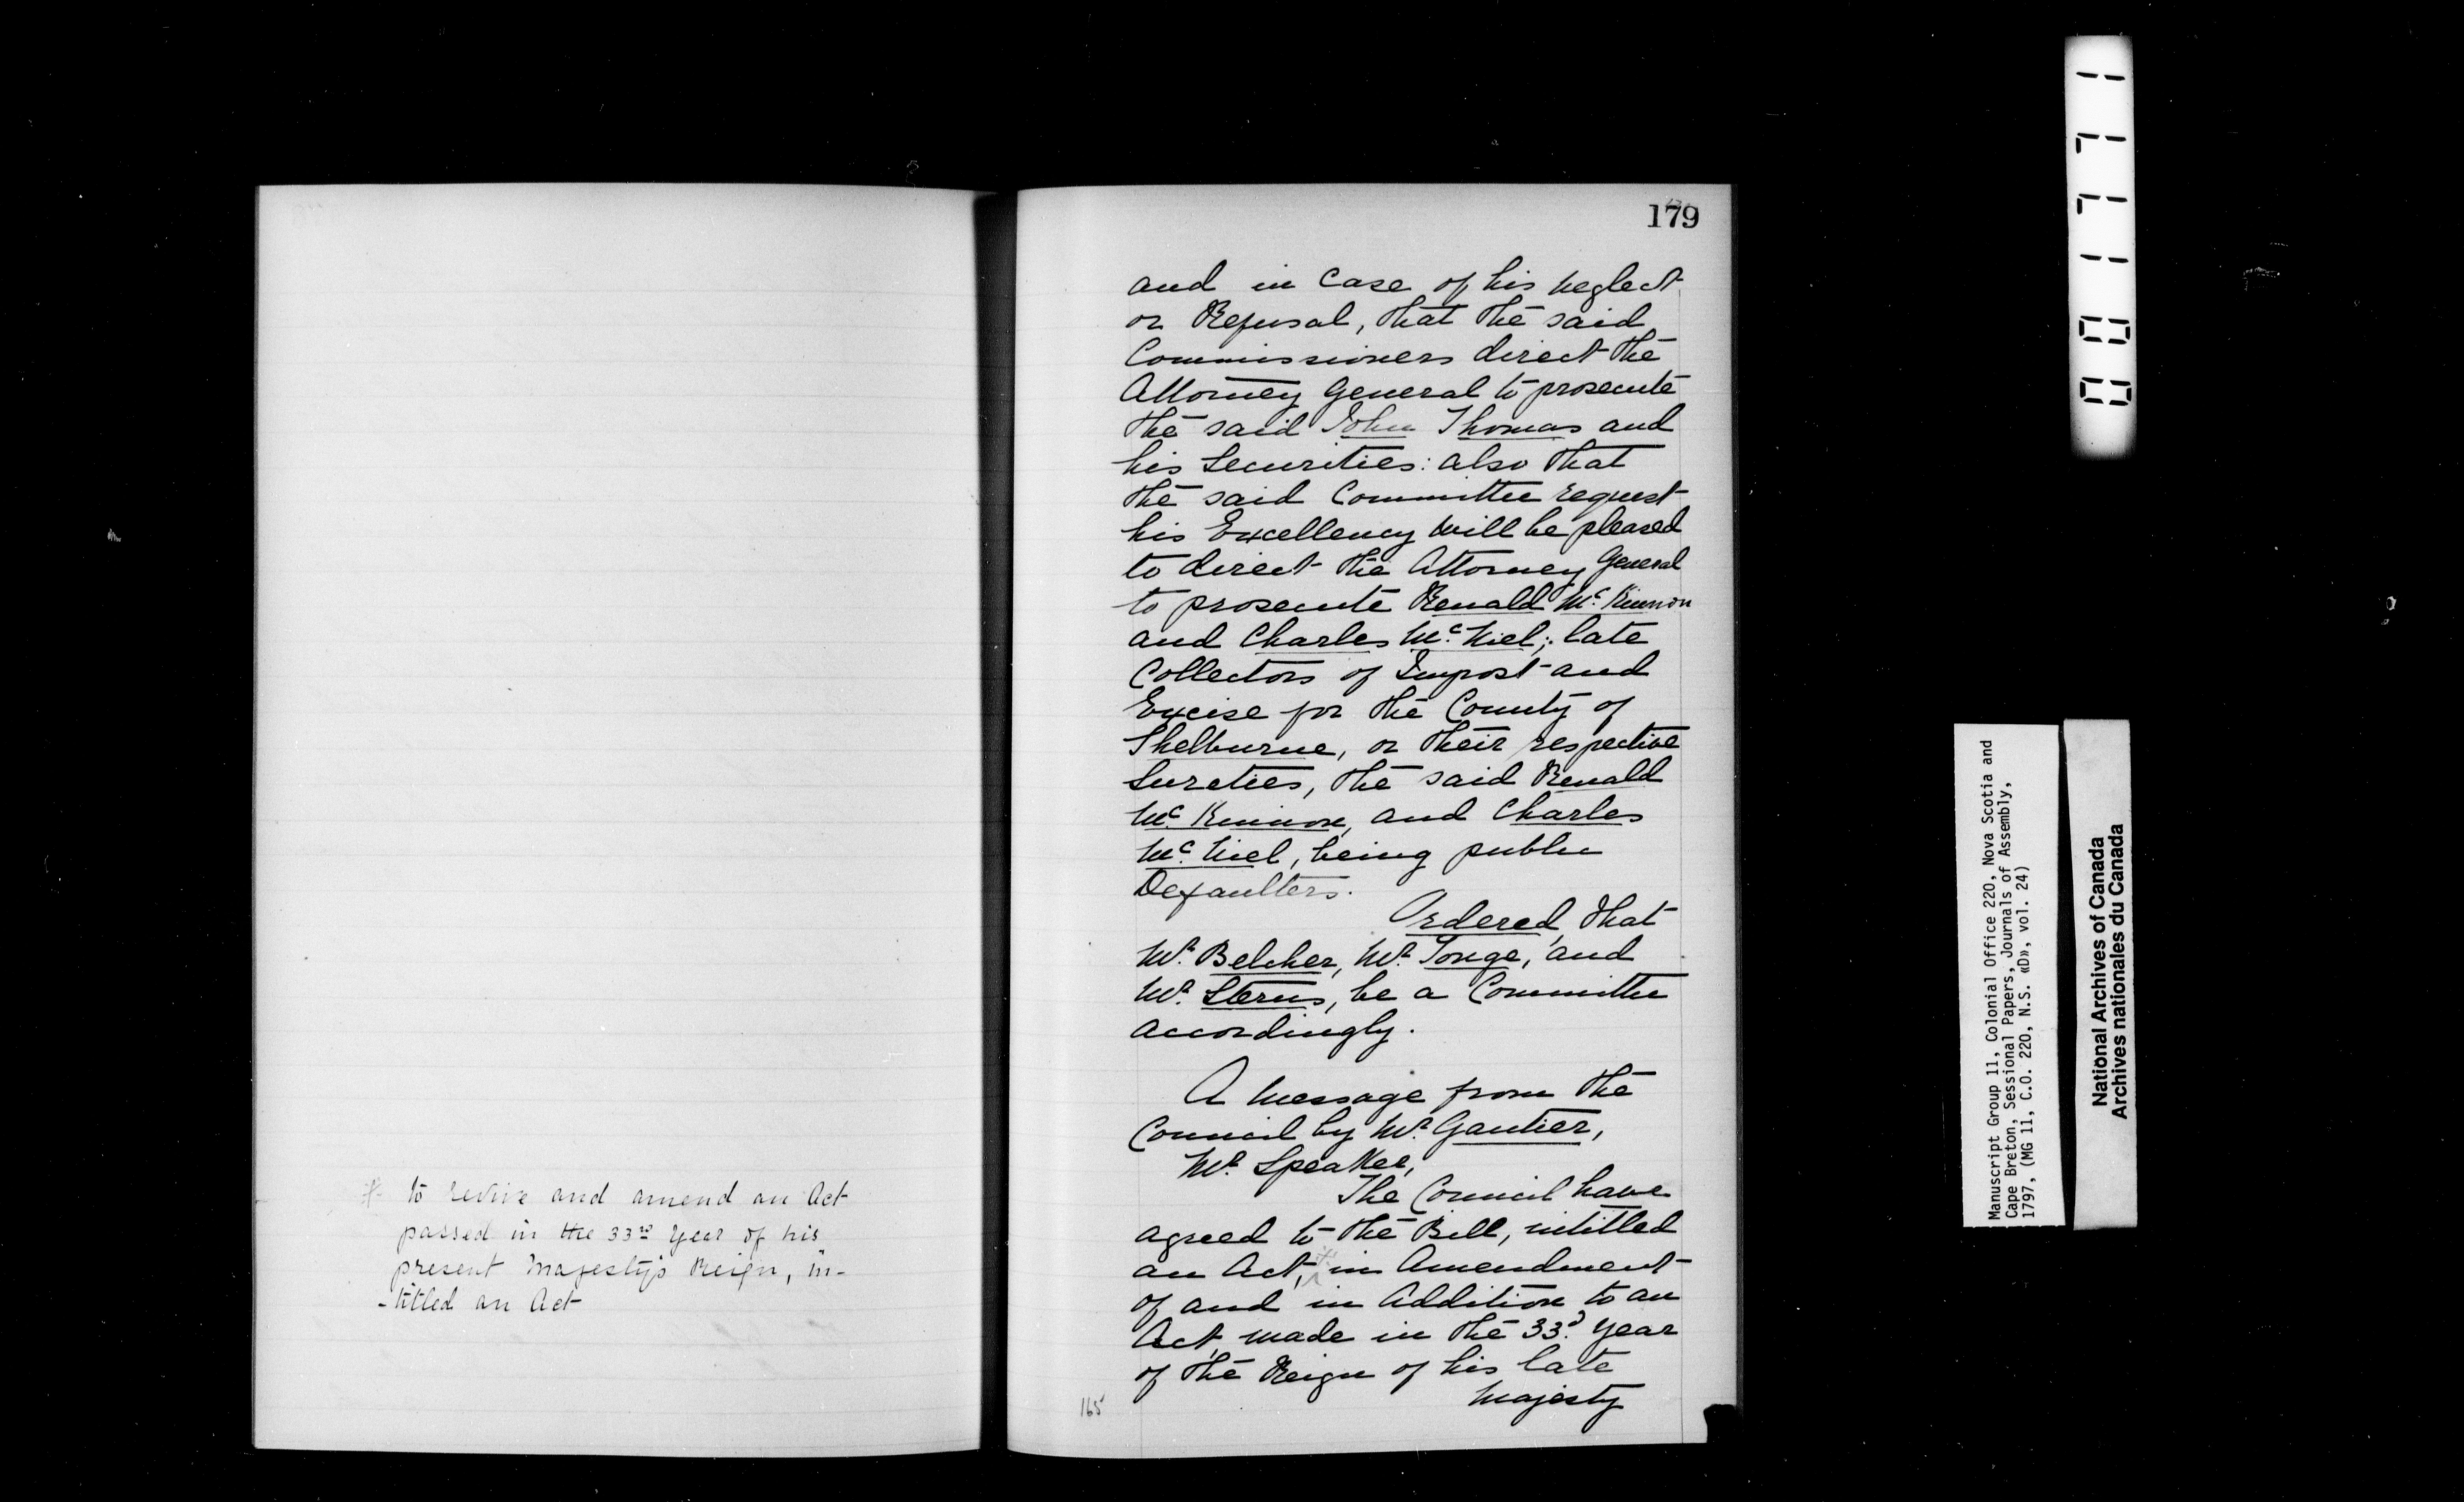 * to revive and amend an Act
passed in the 33rd year of his
present Majesty's Reign, in-
-titled an Act
179
and in Case of his neglect
or Refusal, that the said
Commissioners direct the
Attorney General to prosecute
the said John Thomas and
his Securities: also that
the said Committee request
his Excellency will be pleased
to direct the Attorney General
to prosecute Renald Mc. Kinnon
and Charles Mc. Niel; late
Collectors of Impost and
Excise for the County of
Shelburne, or their respective
Sureties, the said Renald
Mc. Kinnon, and Charles
Mc. Niel, being public
Defaulters.
Ordered, that
Mr. Belcher, Mr. Tonge, and
Mr. Sterns, be a Committee
accordingly.
A Message from the
Council by Mr. Gautier,
Mr. Speaker,
The Council have
agreed to the Bill, intitled
an Act, * in Amendment
of and in Addition to an
Act, made in the 33d. year
of the Reign of his late
Majesty
165
001771
Manuscript Group 11, Colonial Office 220, Nova Scotia and
Cape Breton, Sessional Papers, Journals of Assembly,
1797, (MG 11, C.O. 220, N.S. «D», vol. 24)
National Archives of Canada
Archives nationales du Canada